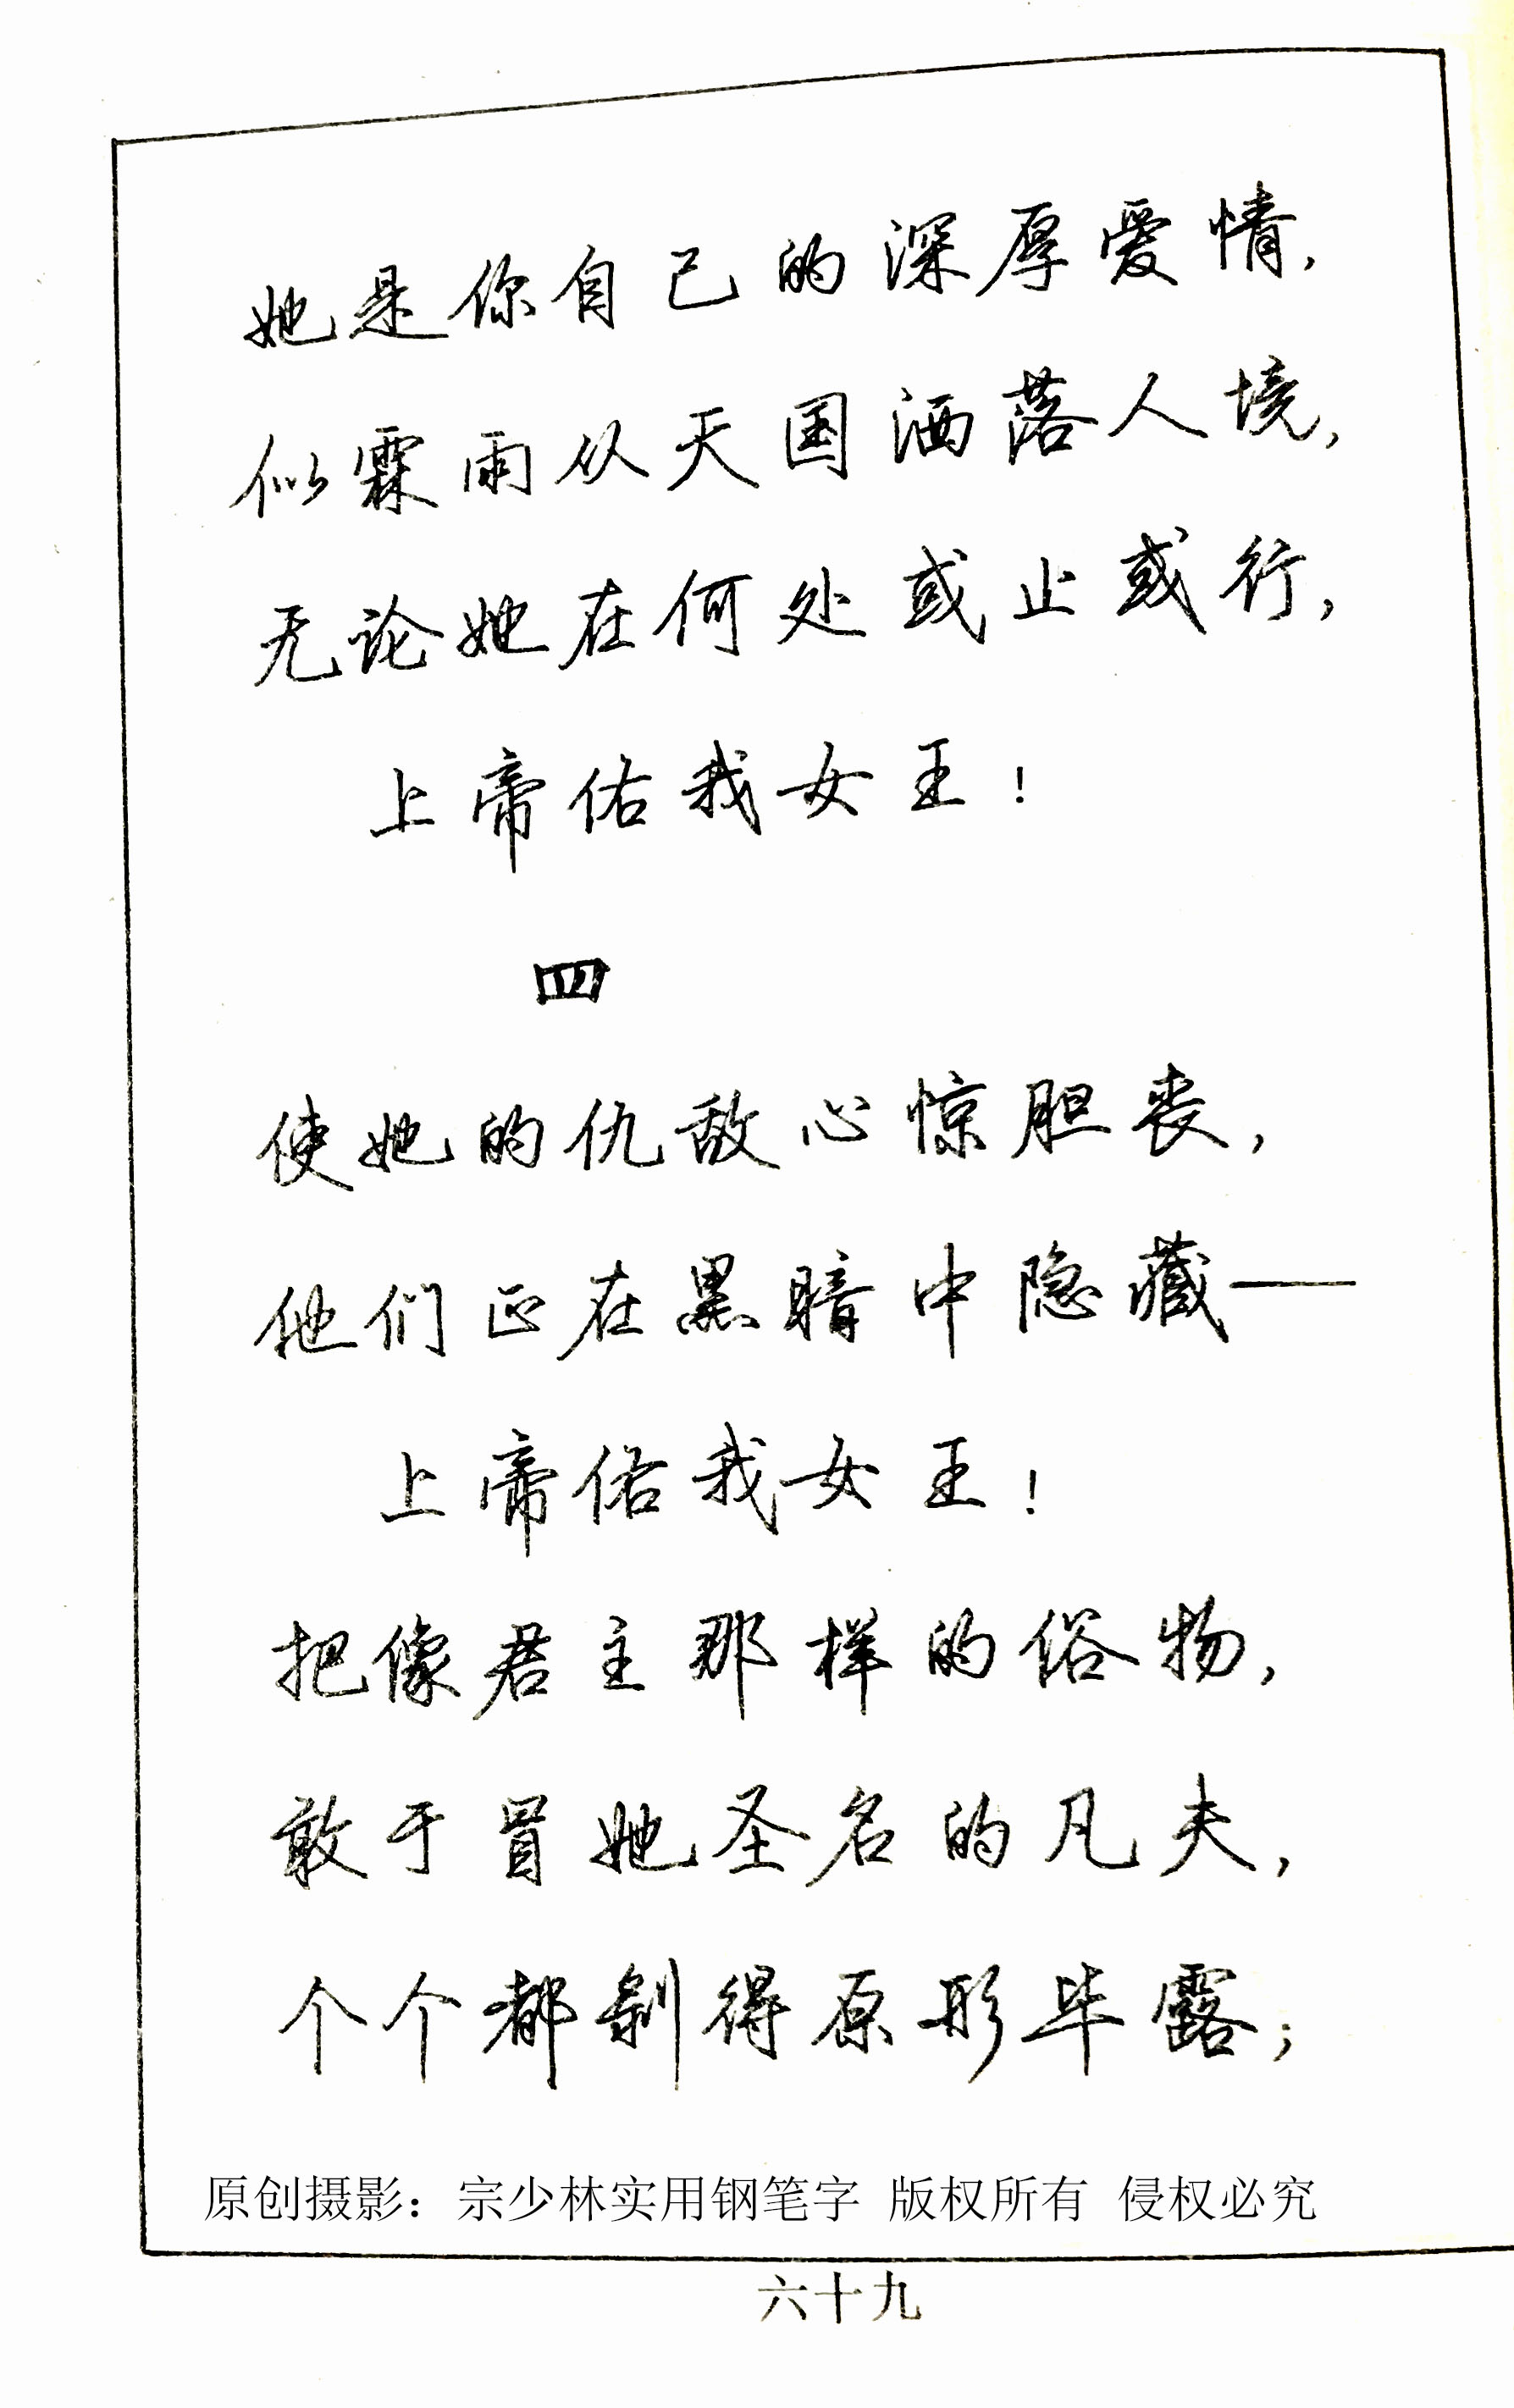 她是你自己的深厚爱情,
似霖雨从天国洒落人境,
无论她在何处或止或行,
上帝佑我女王!
四
使她的仇敌心惊胆丧,
他们正在黑暗中隐藏——
上帝佑我女王!
把像君主那样的俗物,
敢于冒她圣名的凡夫,
个个都剥得原形毕露;
原创摄影：宗少林实用钢笔字 版权所有 侵权必究
六十九